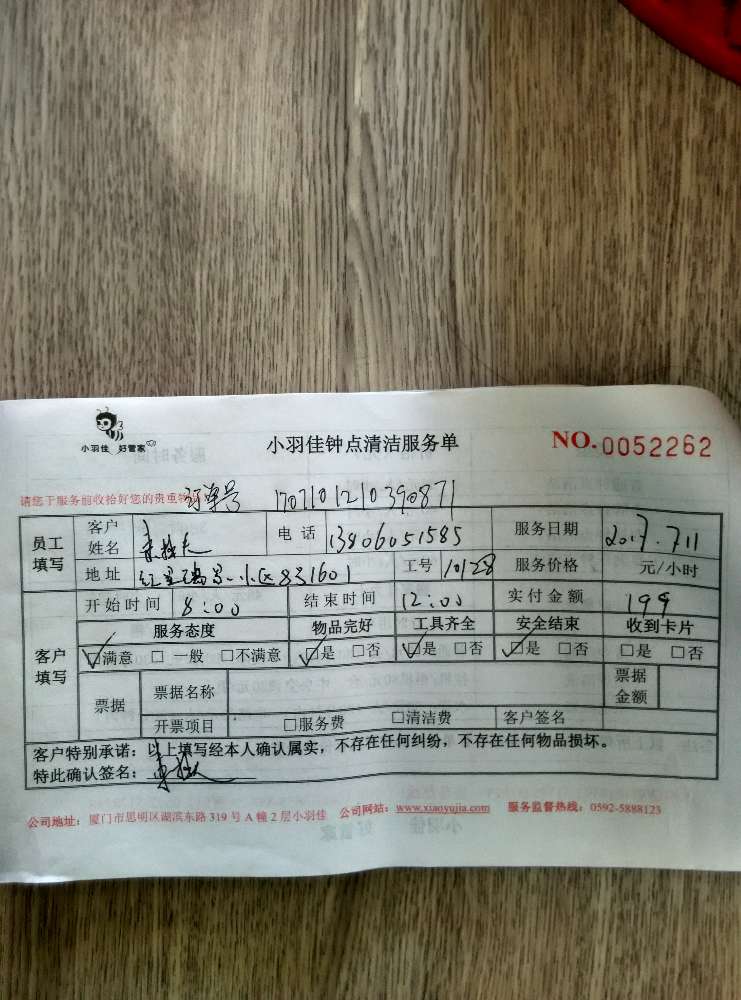 小羽佳 好管家
小羽佳钟点清洁服务单
NO.0052262
请您于服务前收拾好您的贵重物
订单号 1707101210390871
员工填写 客户姓名 电话 13806051585 服务日期 2017.7.11
地址 小区 831601 工号 10128 服务价格 元/小时
客户填写 开始时间 8:00 结束时间 12:00 实付金额 199
服务态度 物品完好 工具齐全 安全结束 收到卡片
☑满意 □一般 □不满意 ☑是 □否 ☑是 □否 ☑是 □否 □是 □否
票据 票据名称 票据金额
开票项目 □服务费 □清洁费 客户签名
客户特别承诺：以上填写经本人确认属实，不存在任何纠纷，不存在任何物品损坏。
特此确认签名：
公司地址：厦门市思明区湖滨东路 319 号 A 幢 2 层小羽佳 公司网站：www.xiaoyujia.com 服务监督热线：0592-5888123